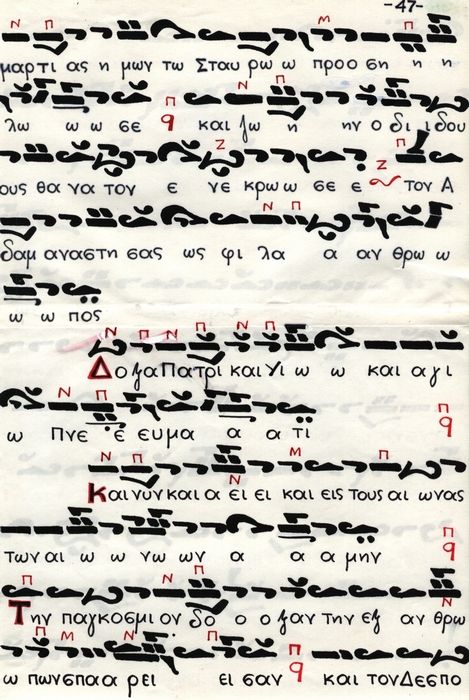 -47-
μαρτι ας η μων τω Σταυ ρω ω προσ ση η η
λω ω ω σε και ζω η ην ο δι ιδου
ους θα να τον ε νε κρω ω σε ε τον Α
δαμ αναστη σας ως φι λα α αν θρω ω
ω ω πος
Δο ξα Πατρι και Υι ω ω και α γι
ω Πνε ε ευμα α α τι
Και νυν και α ει ει και εις τους αι ωνας
των αι ω ω νω ων α α α μην
Την παγκοσμι ον δο ο ο ξαν την εξ αν θρω
ω πωνσπαα ρει ει σαν και τονΔεσπο